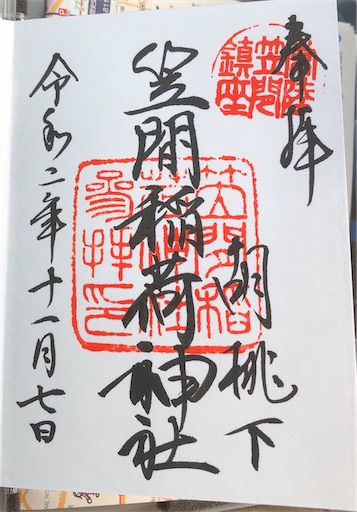 奉拝
常陸
笠間
鎮座
胡桃下
笠間稲荷神社
笠間稲
荷神社
参拝印
令和二年十一月七日